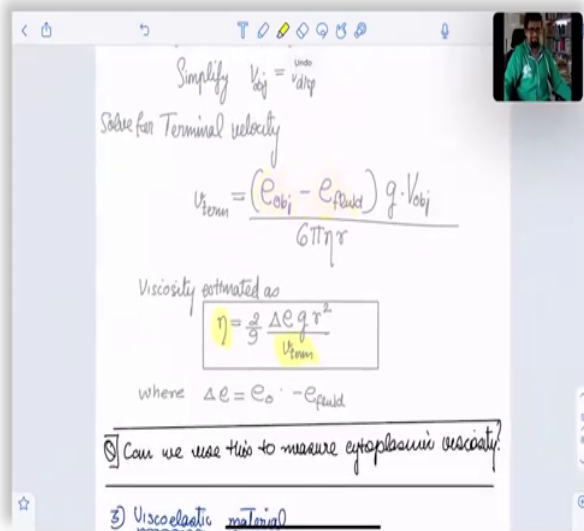 Simplify V_obj = V_disp
Undo
Solve for Terminal velocity
v_term = (ρ_obj - ρ_fluid) g·V_obj / 6πηr
Viscosity estimated as
η = 2/9 Δρ g r² / v_term
where Δρ = ρ_o - ρ_fluid
Q] Can we use this to measure cytoplasmic viscosity?
3) Viscoelastic material